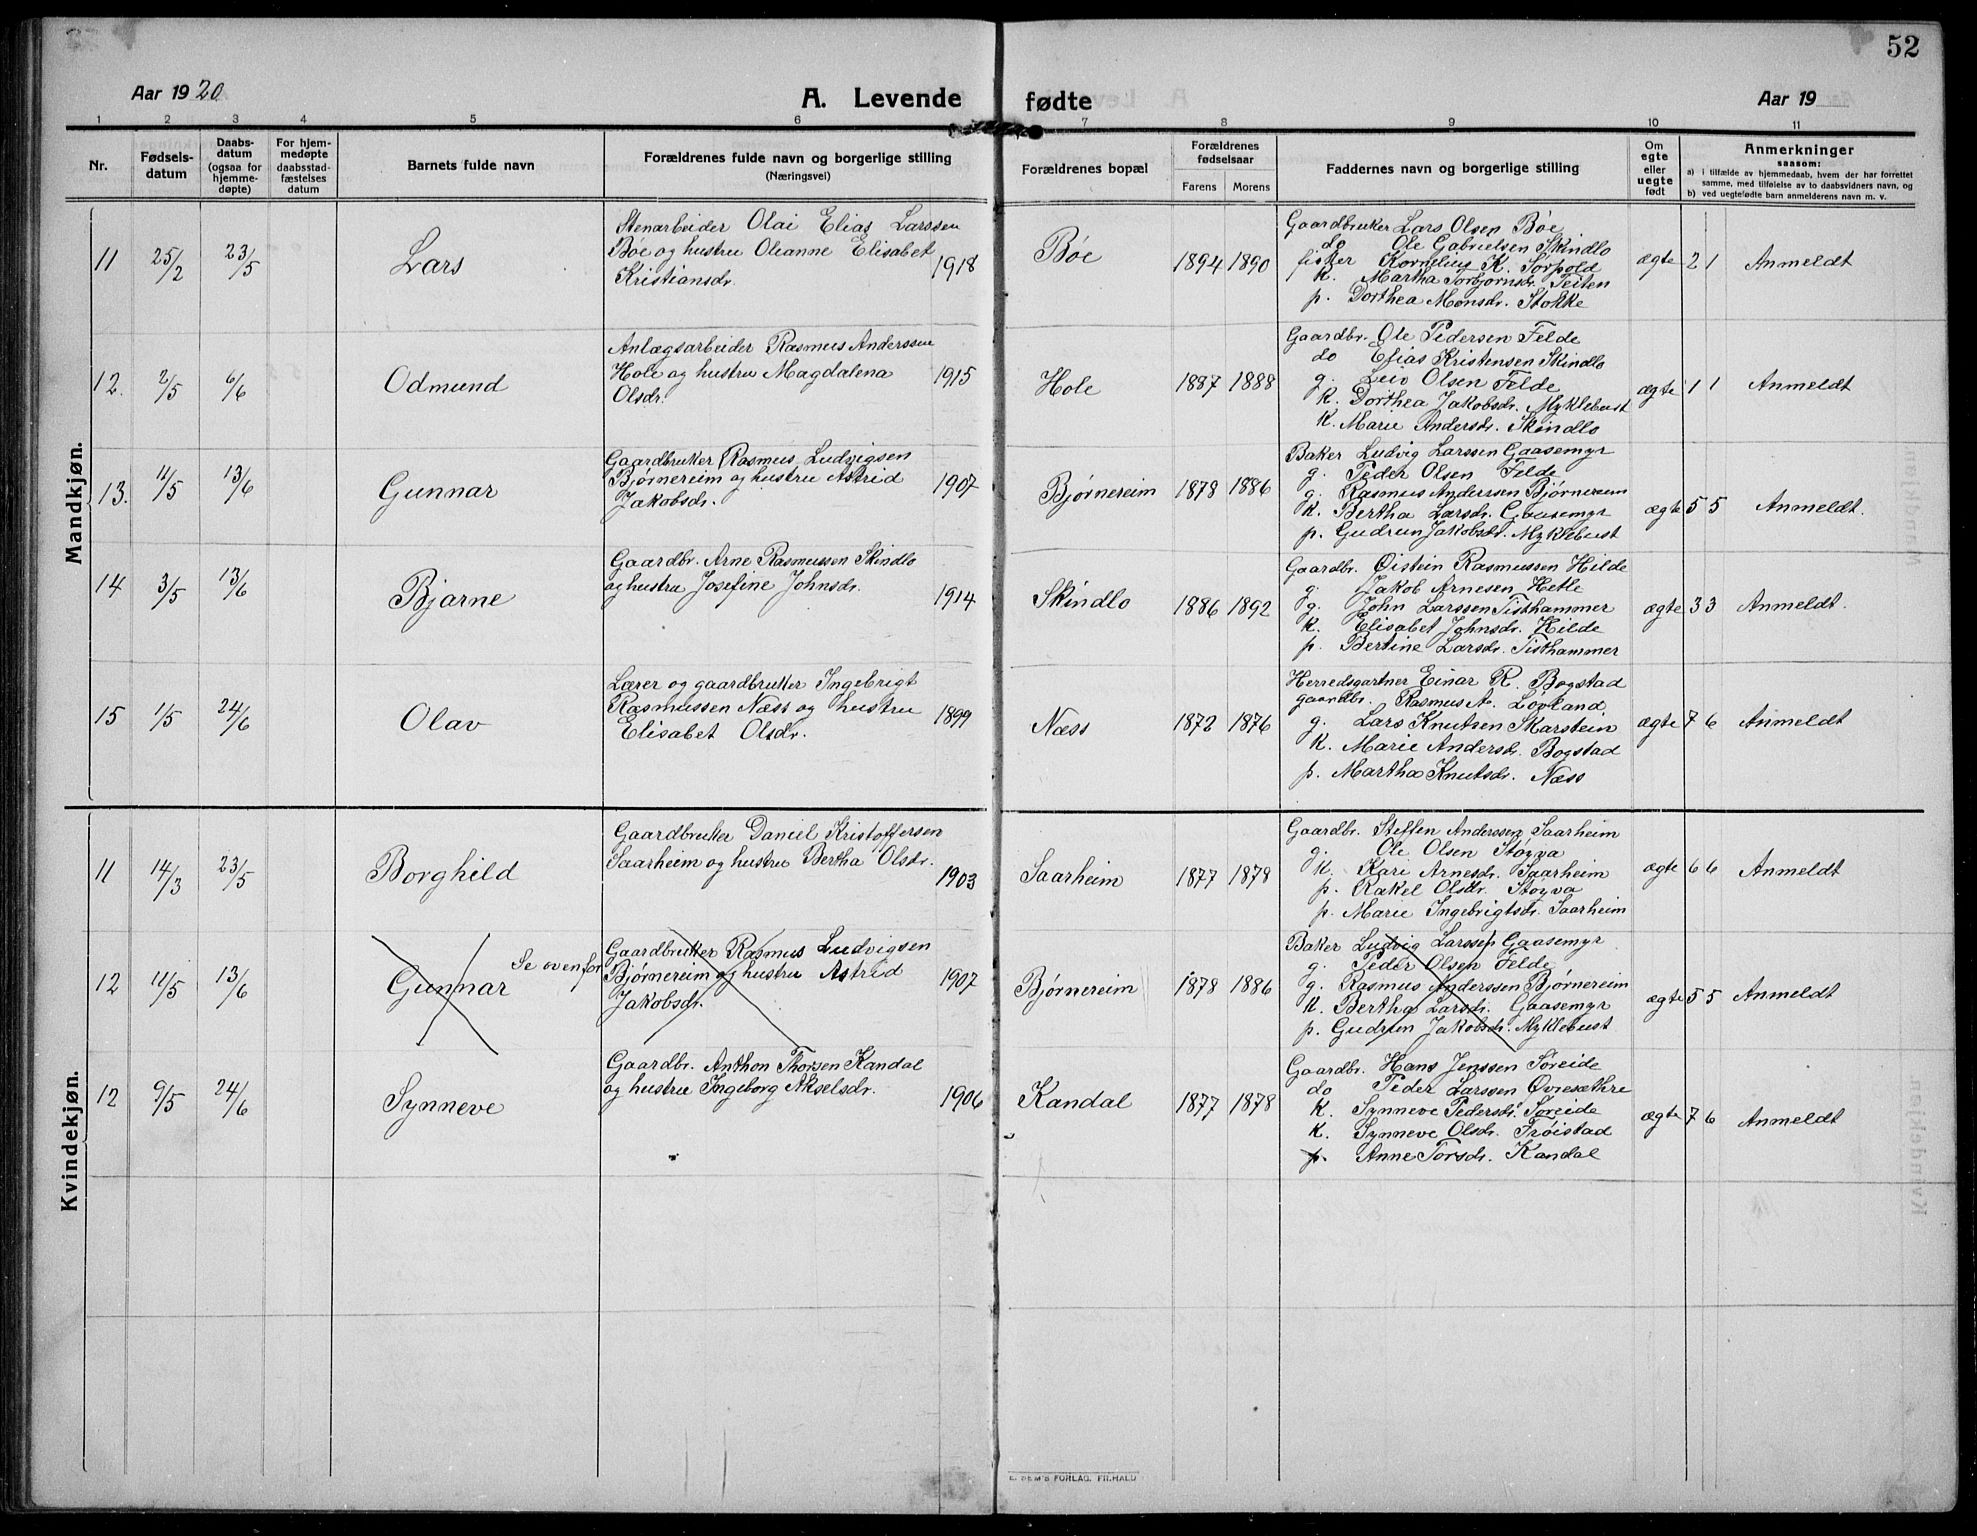 52
Aar 1920
A. Levende fødte
Aar 19
1 2 3 4 5 6 7 8 9 10 11
Nr.
Fødsels-
datum
Daabs-
datum
(ogsaa for
hjemme-
døpte)
For hjem-
medøpte
daabsstad-
fæstelses
datum
Barnets fulde navn
Forældrenes fulde navn og borgerlige stilling
(Næringsvei)
Forældrenes bopæl
Forældrenes
fødselsaar
Farens Morens
Faddernes navn og borgerlige stilling
Om
egte
eller
uegte
født
Anmerkninger
saasom:
a) i tilfælde av hjemmedaab, hvem der har forrettet
samme, med tilføielse av to daabsvidners navn, og
b) ved uegtefødte barn anmelderens navn m. v.
Mandkjøn.
11 25/2 23/5 Lars
Stenarbeider Olai Elias Larssen
Bøe og hustru Oleanne Elisabet
Kristiansdr.
1918 Bøe 1894 1890
Gaardbruker Lars Olsen Bøe
do Ole Gabrielsen Skindlo
fisker Kornelius K. Sørpold
k. Martha Torbjørnsdr. Teiten
p. Dorthea Monsdr. Stokke
ægte 2 1 Anmeldt
12. 2/5 6/6 Odmund
Anlægsarbeider Rasmus Anderssen
Hole og hustru Magdalena
Olsdr.
1915 Hole 1887 1888
Gaardbr. Ole Pedersen Felde
do Elias Kristensen Skindlo
g. Leiv Olsen Felde
k. Dorthea Jakobsdr. Myklebust
k. Marie Andersdr. Skindlo
ægte 1 1 Anmeldt
13. 11/5 13/6 Gunnar
Gaardbruker Rasmus Ludvigsen
Bjørnereim og hustru Astrid
Jakobsdr.
1907 Bjørnereim 1878 1886
Baker Ludvig Larssen Gaasemyr
g. Peder Olsen Felde
g. Rasmus Anderssen Bjørnereim
k. Bertha Larsdr. Gaasemyr
p. Gudrun Jakobsdr. Myklebust
ægte 5 5 Anmeldt.
14 3/5 13/6 Bjarne
Gaardbr. Arne Rasmussen Skindlo
og hustru Josefine Johnsdr.
1914 Skindlo 1886 1892
Gaardbr. Øistein Rasmussen Hilde
g. Jakob Arnesen Hetle
g. John Larssen Tisthammer
k. Elisabet Johnsdr. Hilde
p. Bertine Larsdr. Tisthammer
ægte 3 3 Anmeldt.
15 1/5 24/6 Olav
Lærer og gaardbruker Ingebrigt
Rasmussen Næss og hustru
Elisabet Olsdr.
1899 Næss 1872 1876
Herredsgartner Einar R. Bogstad
gaardbr. Rasmus A. Lovland
g. Lars Knutsen Skarstein
k. Marie Andersdr. Bogstad
p. Martha Knutsdr. Næss
ægte 7 6 Anmeldt
Kvindekjøn.
11 14/3 23/5 Borghild
Gaardbruker Daniel Kristoffersen
Saarheim og hustru Bertha Olsdr.
1903 Saarheim 1877 1878
Gaardbr. Steffen Anderssen Saarheim
g. Ole Olsen Støyva
k. Kari Arnesdr. Saarheim
p. Rakel Olsdr. Støyva
p. Marie Ingebrigtsdr. Saarheim
ægte 6 6 Anmeldt
12 11/5 13/6 Gunnar Se ovenfor
Gaardbruker Rasmus Ludvigsen
Bjørnereim og hustru Astrid
Jakobsdr.
1907 Bjørnereim 1878 1886
Baker Ludvig Larssen Gaasemyr
g. Peder Olsen Felde
g. Rasmus Anderssen Bjørnereim
k. Bertha Larsdr. Gaasemyr
p. Gudrun Jakobsdr. Myklebust
ægte 5 5 Anmeldt
12 9/5 24/6 Synneve
Gaardbr. Anthon Thorsen Kandal
og hustru Ingeborg Akselsdr.
1906 Kandal 1877 1878
Gaardbr. Hans Jenssen Søreide
do Peder Larssen Øvresæthre
k. Synneve Pedersdr. Søreide
k. Synneve Olsdr. Trøistad
p. Anne Torsdr. Kandal
ægte 7 6 Anmeldt
E. SEM'S FORLAG, FR.HALD